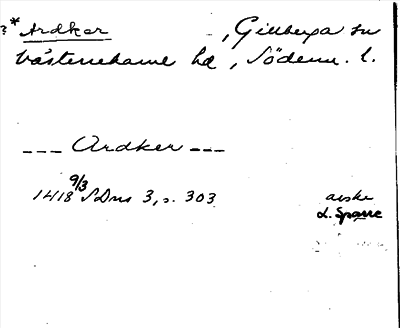 ?* Ardker , Gillberga sn
Västerrekarne hd, Söderm. l.
--- Ardker ---
1418 9/3 SDns 3, s. 303 avskr
L. Sparre